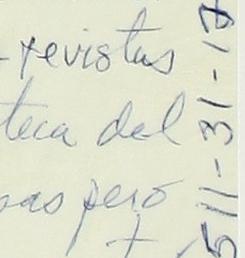 -revistas
teca del
sas pero
511-31-17